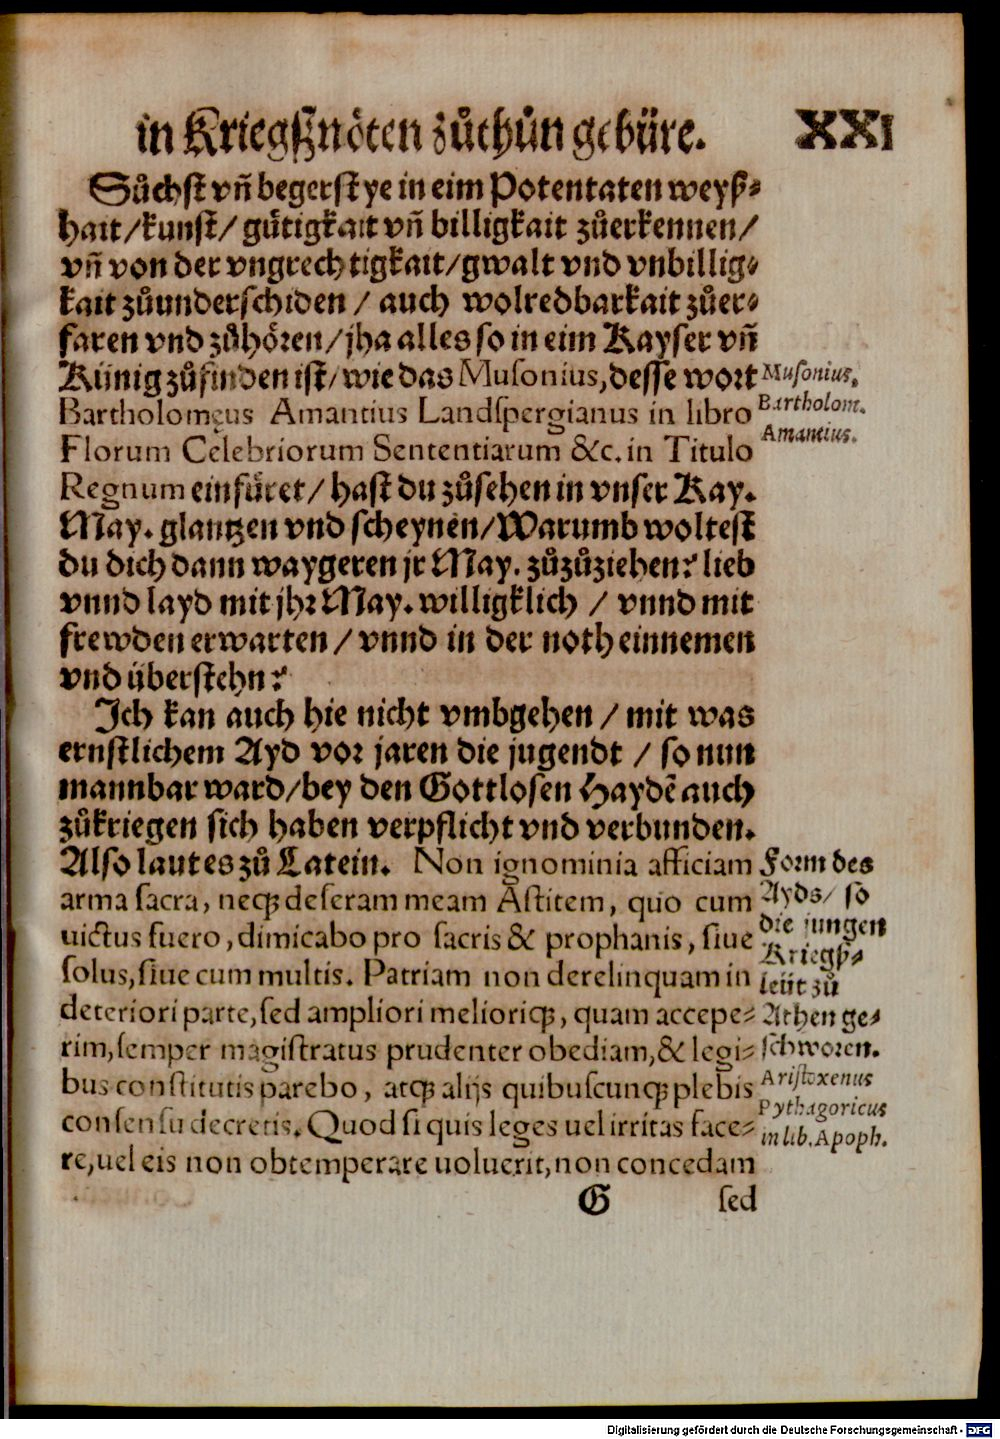 in Kriegßnöten zůthůn gebüre. XXI
Sůchst vñ begerst ye in eim Potentaten weyß⸗
hait/kunst/ gůtigkait vñ billigkait zůerkennen/
vñ von der vngrechtigkait/gwalt vnd vnbillig⸗
kait zůunderschiden / auch wolredbarkait zůer⸗
faren vnd zůhôren/jha alles so in eim Kayser vñ
Künig zůfinden ist/wie das Musonius,desse wort
Bartholomęus Amantius Landſpergianus in libro
Florum Celebriorum Sententiarum &c. in Titulo
Regnum einfüret/ hast du zůsehen in vnser Kay.
May. glantzen vnd scheynen/Warumb woltest
du dich dann waygeren jr May. zůzůziehen? lieb
vnnd layd mit jhr May. willigklich / vnnd mit
frewden erwarten/ vnnd in der noth einnemen
vnd überstehn?
Musonius.
Bartholom.
Amantius.
Ich kan auch hie nicht vmbgehen / mit was
ernstlichem Ayd vor jaren die jugendt / so nun
mannbar ward/bey den Gottlosen Haydẽ auch
zůkriegen sich haben verpflicht vnd verbunden.
Also lautes zů Latein. Non ignominia afficiam
arma sacra, neq; deseram meam Astitem, quo cum
uictus fuero, dimicabo pro sacris & prophanis, siue
solus, siue cum multis. Patriam non derelinquam in
deteriori parte, sed ampliori melioriq;, quam accepe⸗
rim, semper magistratus prudenter obediam, & legi⸗
bus constitutis parebo, atq; alijs quibuscunq; plebis
consensu decretis. Quod si quis leges uel irritas face⸗
re, uel eis non obtemperare uoluerit, non concedam
Form des
Ayds/ so
die jungen
Kriegß⸗
leüt zů
Athen ge⸗
schworen.
Aristoxenus
Pythagoricus
in lib. Apoph.
G sed
Digitalisierung gefördert durch die Deutsche Forschungsgemeinschaft - DFG